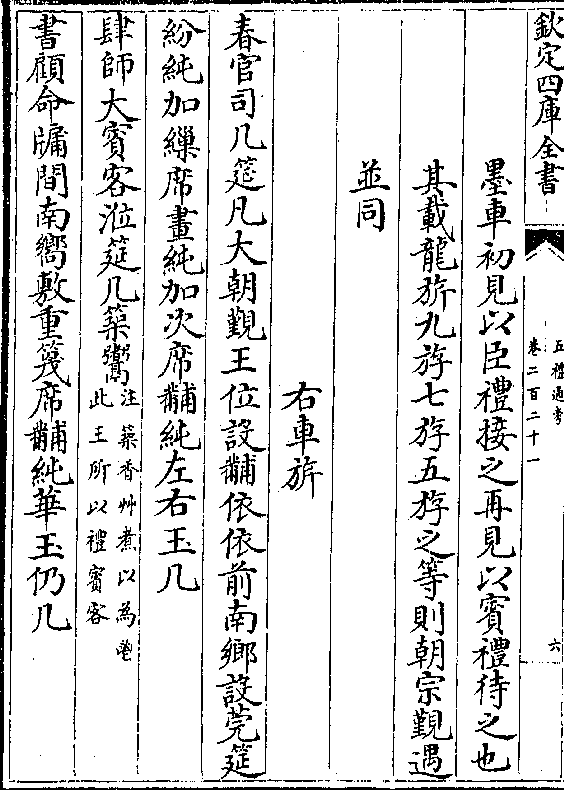 欽定四庫全書
五禮通考
卷二百二十一
六
墨車初見以臣禮接之再見以賓禮待之也
其載龍旂九斿七斿五斿之等則朝宗覲遇
並同
右車旂
春官司几筵凡大朝覲王位設黼依依前南鄉設莞筵
紛純加繅席畫純加次席黼純左右玉几
肆師大賓客涖筵几築鬻注築香艸煮以為鬯
此王所以禮賓客
書顧命牖間南嚮敷重篾席黼純華玉仍几